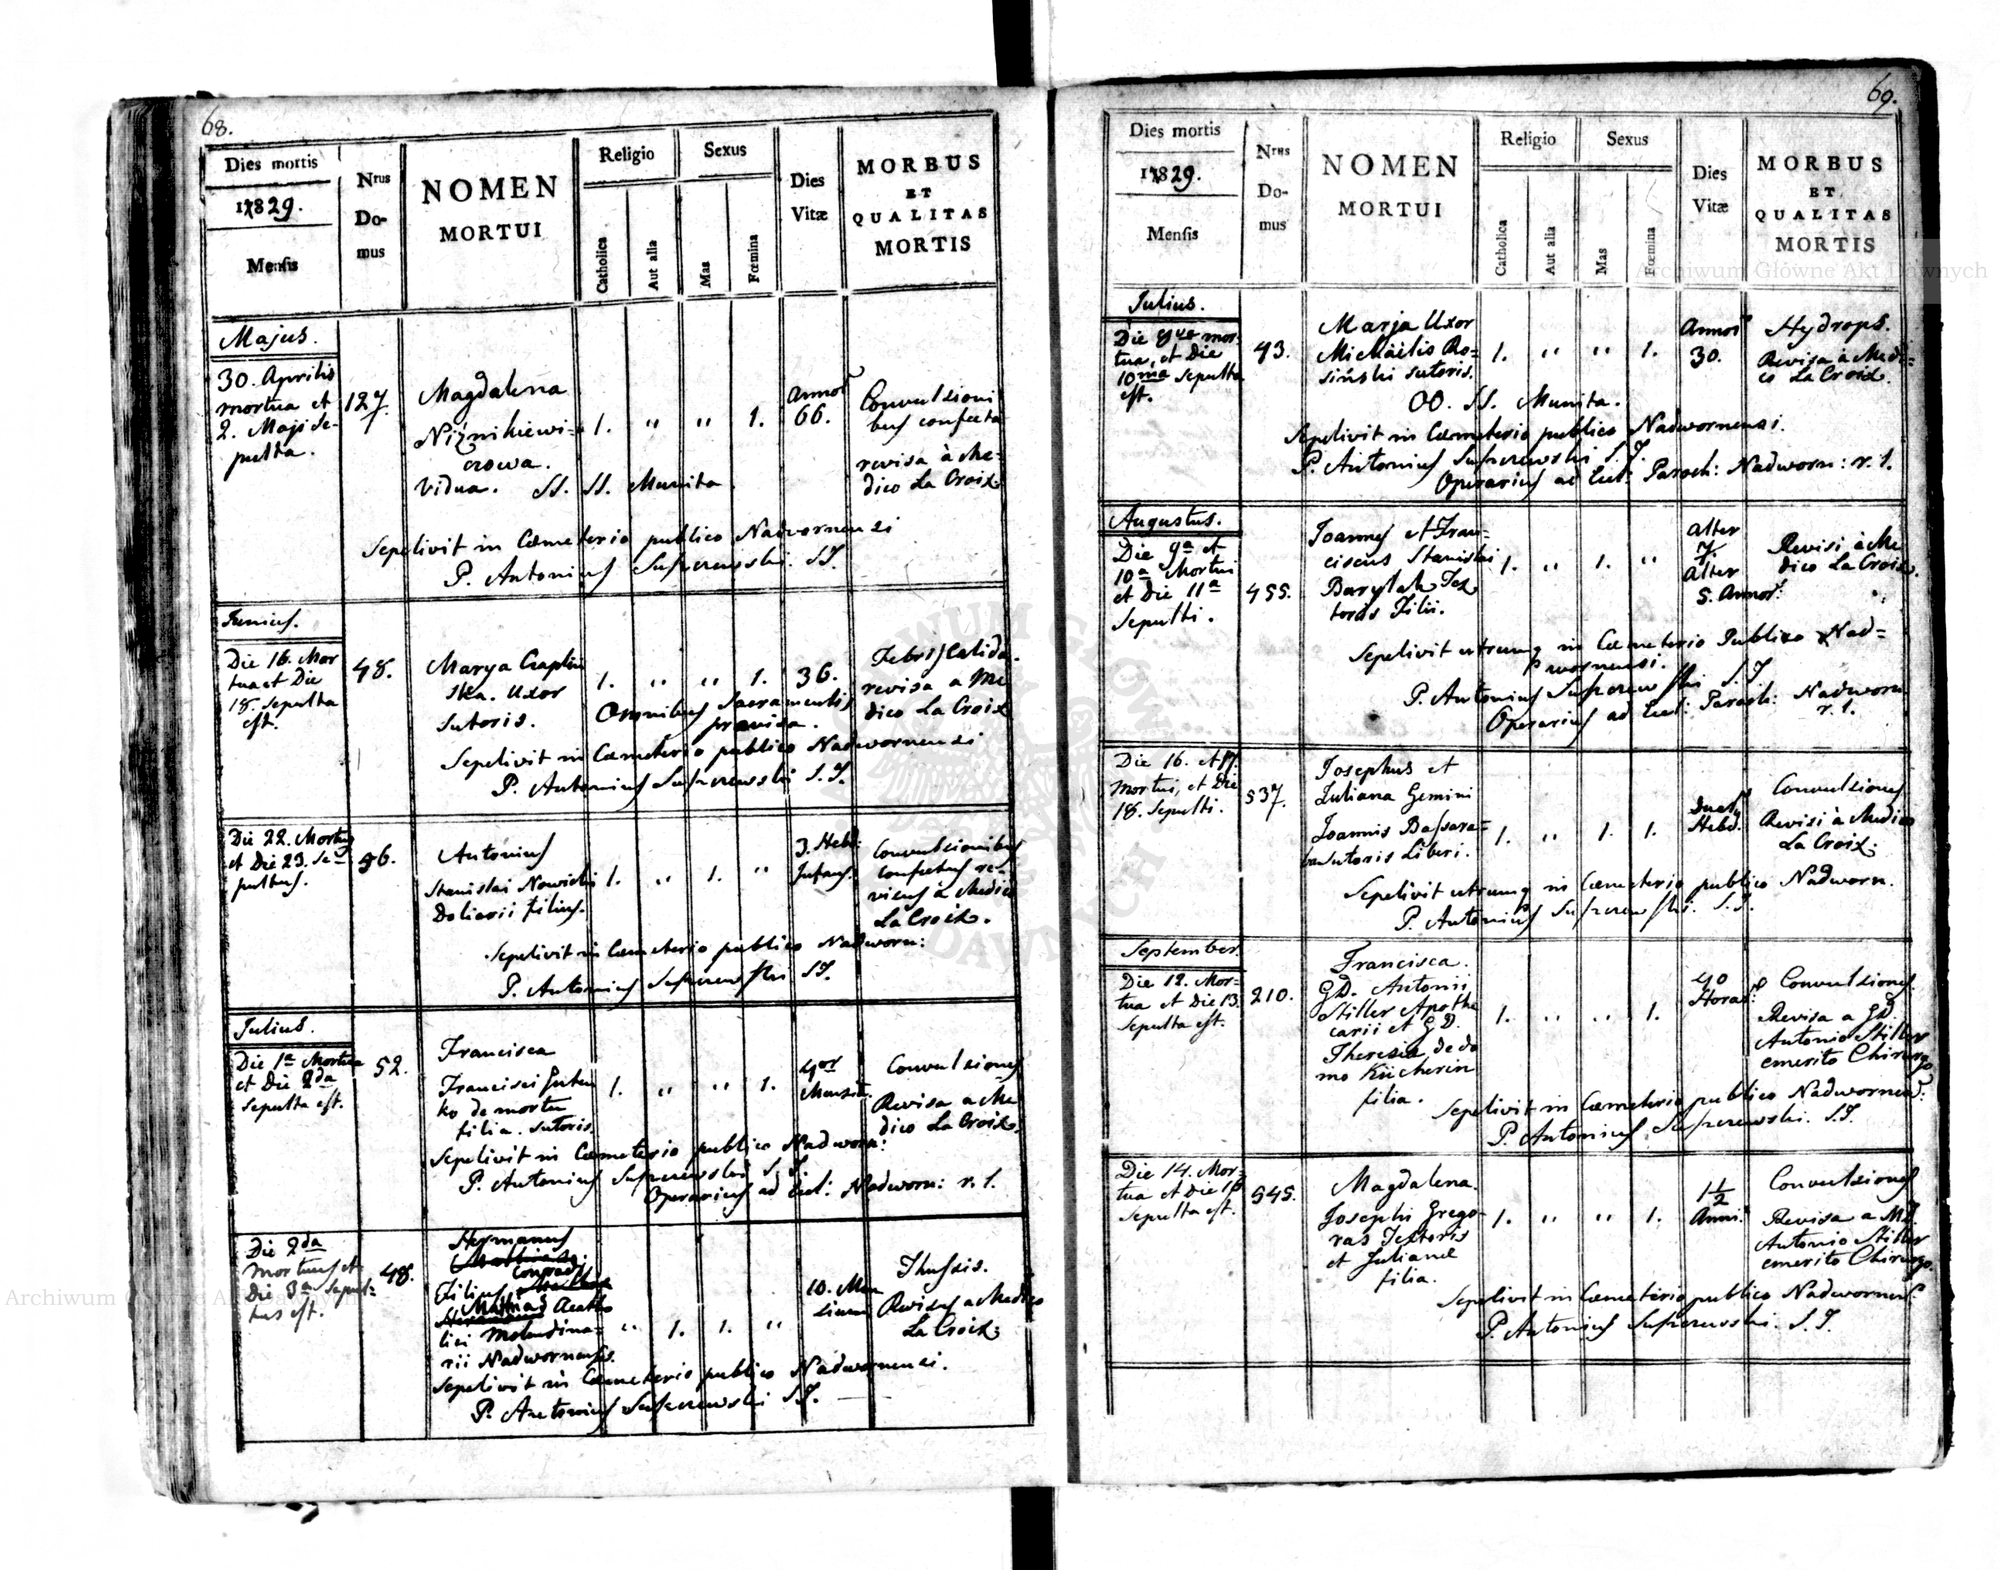 68.
Dies mortis
1829.
Mensis
Nrus Do-mus
NOMEN
MORTUI
Religio
Catholica
Aut alia
Sexus
Mas
Fœmina
Dies
Vitæ
MORBUS
ET
QUALITAS
MORTIS
Majus.
30. Aprilis
mortua et
2. Maji Se-
pulta.
127.
Magdalena
Niźnikiewi-
czowa.
Vidua. SS. SS. Munita
1. " " 1.
Annor
66.
Convulsioni
bus confecta
revisa à Me-
dico La Croix
Sepelivit in Cœmeterio publico Nadvornensi
P. Antonius S.J.
Junius.
Die 16. Mor
tua et Die
18. Sepulta
est.
48.
Marya Czaplin
ska. Uxor
Sutoris.
1. " " 1.
36.
Omnibus Sacramentis
provisa.
Febris Calida.
revisa a Me
dico La Croix
Sepelivit in Cœmeterio publico Nadwornensi
P. Antonius S.J.
Die 22. Mortuus
et Die 23. Se-
pultus.
96.
Antonius
Stanislai Nowicki
Doliarii filius.
1. " 1. "
3. Hebd:
Infans.
Convulsionibus
confectus re-
visus à Medico
La Croix.
Sepelivit in Cœmeterio publico Nadworn:
P. Antonius S.J.
Julius.
Die 1a Mortua
et Die 2da
Sepulta est.
52.
Francisca
Francisci
ko de mortu
filia. Sutoris.
1. " " 1.
4or
Mensium.
Convulsiones
Revisa a Me
dico La Croix.
Sepelivit in Cœmeterio publico Nadworn:
P. Antonius S.J.
Operarius ad Eccl: Nadworn: r. l.
Die 2da
mortuus et
Die 3a Sepul-
tus est.
48.
Hermanus
Conradi
Filius
Mathias Acatho
lici Molendina-
rii Nadwornensis.
" 1. 1. "
10. Men
sium
Thussis.
Revisus a Medico
La Croix.
Sepelivit in Cœmeterio publico Nadwornensi.
P. Antonius S.J.
69.
Dies mortis
1829.
Mensis
Nrus Do-mus
NOMEN
MORTUI
Religio
Catholica
Aut alia
Sexus
Mas
Fœmina
Dies
Vitæ
MORBUS
ET
QUALITAS
MORTIS
Julius.
Die 9na mor-
tua, et Die
10ma Sepulta
est.
93.
Marja Uxor
Michäelis Ro-
siński sutoris.
1. " " 1.
Annor
30.
Hydrops.
Revisa à Medi-
co La Croix.
OO. SS. Munita.
Sepelivit in Cœmeterio publico Nadwornensi.
P. Antonius S.J.
Operarius ad Eccl: Paroch: Nadworn: r. l.
Augustus.
Die 9a et
10a Mortui
et Die 11a
Sepulti.
455.
Joannes et Fran-
ciscus Stanislai
Barylak Tex
toris Filii.
1. " 1. "
Alter
7.
Alter
5. Annor:
Revisi à Me
dico La Croix.
Sepelivit utrumq in Cœmeterio Publico Nad-
wornensi.
P. Antonius S.J.
Operarius ad Eccl: Paroch: Nadworn
r. l.
Die 16. et 17.
Mortui, et Die
18. Sepulti.
537.
Josephus et
Juliana Gemini
Joannis Bassara-
ba Sutoris Liberi.
1. " 1. 1.
Hebd.
Convulsiones
Revisi à Medico
La Croix.
Sepelivit utrumq in Cœmeterio publico Nadworn.
P. Antonius S.J.
September.
Die 12. Mor-
tua et Die 13.
Sepulta est.
210.
Francisca.
GD. Antonii
Stiller Apothe
carii et GD.
Theresiæ de do
mo Kücherin
filia.
1. " " 1.
40
Horar:
Convulsiones.
Revisa a GD.
Antonio Stiller
emerito Chirurgo
Sepelivit in Cœmeterio publico Nadwornens:
P. Antonius S.J.
Die 14. Mor-
tua et Die 16
Sepulta est.
545.
Magdalena.
Josephi Grego-
ras Textoris
et Julianæ
filia.
1. " " 1.
1 1/2
Anni.
Convulsiones
Revisa a MD.
Antonio Stiller
emerito Chirurgo.
Sepelivit in Cœmeterio publico Nadwornens.
P. Antonius S.J.
Archiwum Główne Akt Dawnych
Archiwum Główne Akt Dawnych